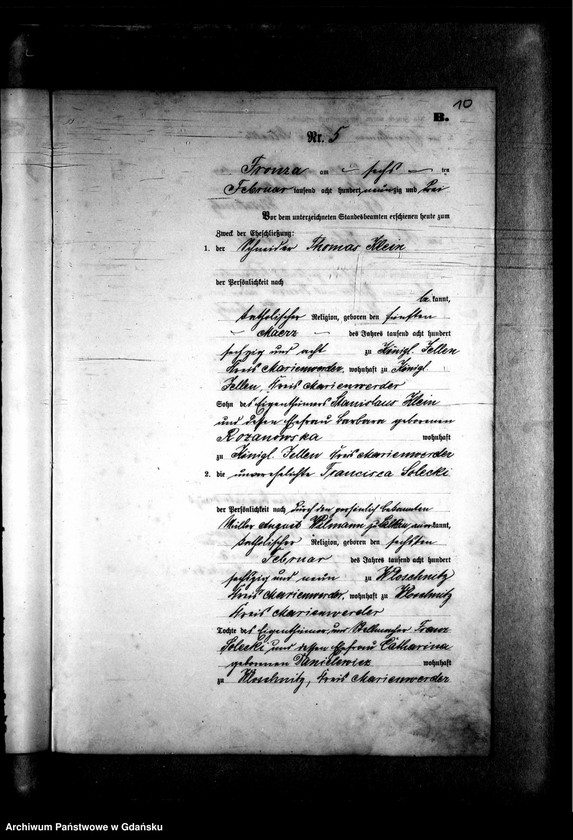 10
B.
Nr. 5
Fronza am sechs ten
Februar tausend acht hundert neunzig und drei
Vor dem unterzeichneten Standesbeamten erschienen heute zum
Zweck der Eheschließung:
1. der Schneider Thomas Klein
der Persönlichkeit nach
be kannt,
katholischer Religion, geboren den fünften
Maerz des Jahres tausend acht hundert
sechzig und acht zu Königl. Jellen
Kreis Marienwerder, wohnhaft zu Königl.
Jellen, Kreis Marienwerder
Sohn des Eigenthümers Stanislaus Klein
und dessen Ehefrau Barbara geborenen
Rozanowska wohnhaft
zu Königl. Jellen Kreis Marienwerder
2. die unverehelichte Francisca Solecki
der Persönlichkeit nach durch den persönlich bekannten
Müller August zu anerkannt,
katholischer Religion, geboren den sechsten
Februar des Jahres tausend acht hundert
sechzig und neun zu Wloschnitz
Kreis Marienwerder, wohnhaft zu Wloschnitz
Kreis Marienwerder
Tochter des Eigenthümer und Stellmacher Franz
Solecki und dessen Ehefrau Catharina
geborenen Danielewicz wohnhaft
zu Wloschnitz, Kreis Marienwerder
Archiwum Państwowe w Gdańsku